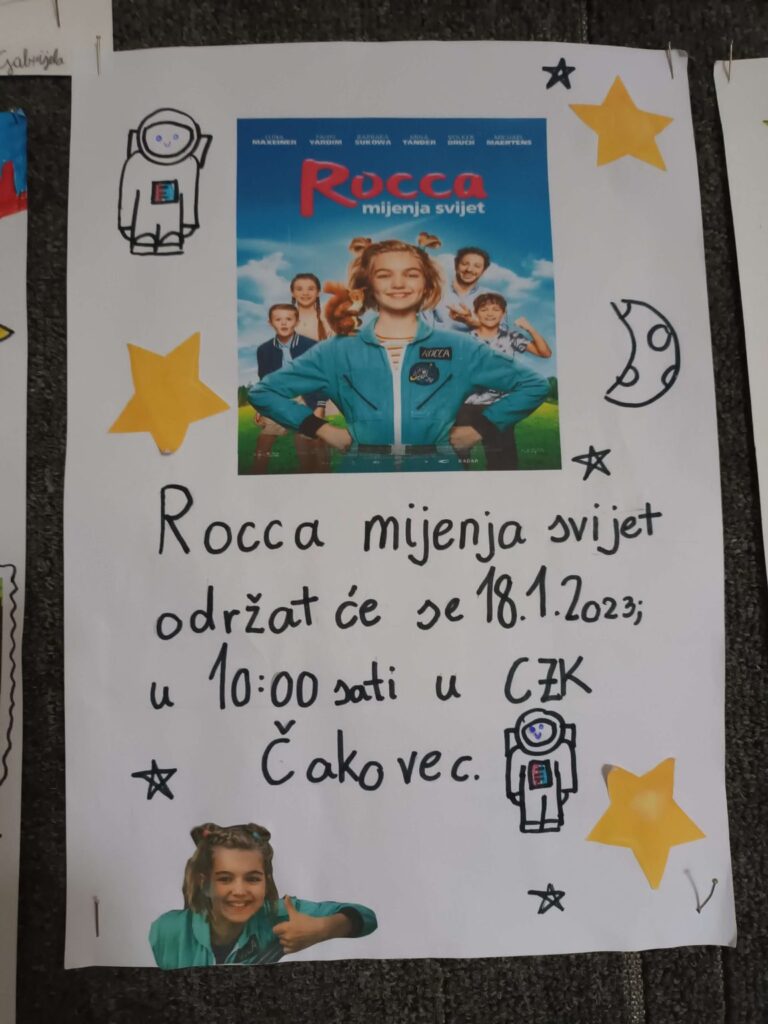 Gabrijela
LUNA FAHRI BARBARA MINA VOLKER MICHAEL
MAXEINER YARDIM SUKOWA TANDER BRUCH MAERTENS
Rocca
mijenja svijet
ROCCA
Rocca mijenja svijet
održat će se 18.1.2023;
u 10:00 sati u CZK
Čakovec.